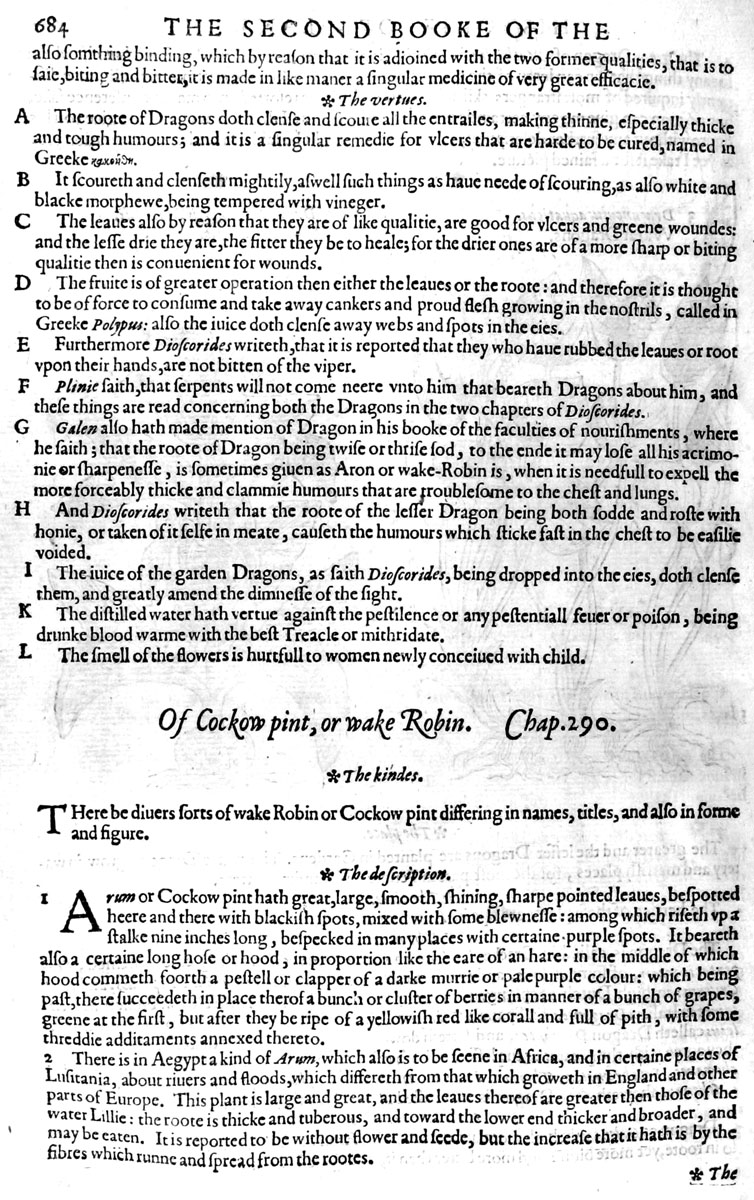 684 THE SECOND BOOKE OF THE
alſo ſomthing binding, which by reaſon that it is adioined with the two former qualities, that is to
ſaie, biting and bitter, it is made in like maner a ſingular medicine of very great efficacie.
❧ The vertues.
A The roote of Dragons doth clenſe and ſcoure all the entrailes, making thinne, eſpecially thicke
and tough humours; and it is a ſingular remedie for vlcers that are harde to be cured, named in
Greeke
B It ſcoureth and clenſeth mightily, aſwell ſuch things as haue neede of ſcouring, as alſo white and
blacke morphewe, being tempered with vineger.
C The leaues alſo by reaſon that they are of like qualitie, are good for vlcers and greene woundes:
and the leſſe drie they are, the fitter they be to heale; for the drier ones are of a more ſharp or biting
qualitie then is conuenient for wounds.
D The fruite is of greater operation then either the leaues or the roote: and therefore it is thought
to be of force to conſume and take away cankers and proud fleſh growing in the noſtrils, called in
Greeke Polypus: alſo the iuice doth clenſe away webs and ſpots in the eies.
E Furthermore Dioſcorides writeth, that it is reported that they who haue rubbed the leaues or root
vpon their hands, are not bitten of the viper.
F Plinie ſaith, that ſerpents will not come neere vnto him that beareth Dragons about him, and
theſe things are read concerning both the Dragons in the two chapters of Dioſcorides.
G Galen alſo hath made mention of Dragon in his booke of the faculties of nouriſhments, where
he ſaith; that the roote of Dragon being twiſe or thriſe ſod, to the ende it may loſe all his acrimo-
nie or ſharpeneſſe, is ſometimes giuen as Aron or wake-Robin is, when it is needfull to expell the
more forceably thicke and clammie humours that are troubleſome to the cheſt and lungs.
H And Dioſcorides writeth that the roote of the leſſer Dragon being both ſodde and roſte with
honie, or taken of it ſelfe in meate, cauſeth the humours which ſticke faſt in the cheſt to be eaſilie
voided.
I The iuice of the garden Dragons, as ſaith Dioſcorides, being dropped into the eies, doth clenſe
them, and greatly amend the dimneſſe of the ſight.
K The diſtilled water hath vertue againſt the peſtilence or any peſtentiall feuer or poiſon, being
drunke blood warme with the beſt Treacle or mithridate.
L The ſmell of the flowers is hurtfull to women newly conceiued with child.
Of Cockow pint, or wake Robin. Chap. 290.
❧ The kindes.
THere be diuers ſorts of wake Robin or Cockow pint differing in names, titles, and alſo in forme
and figure.
❧ The deſcription.
1 Arum or Cockow pint hath great, large, ſmooth, ſhining, ſharpe pointed leaues, beſpotted
heere and there with blackiſh ſpots, mixed with ſome blewneſſe: among which riſeth vp a
ſtalke nine inches long, beſpecked in many places with certaine purple ſpots. It beareth
alſo a certaine long hoſe or hood, in proportion like the eare of an hare: in the middle of which
hood commeth foorth a peſtell or clapper of a darke murrie or pale purple colour: which being
paſt, there ſucceedeth in place therof a bunch or cluſter of berries in manner of a bunch of grapes,
greene at the firſt, but after they be ripe of a yellowiſh red like corall and full of pith, with ſome
threddie additaments annexed thereto.
2 There is in Aegypt a kind of Arum, which alſo is to be ſeene in Africa, and in certaine places of
Luſitania, about riuers and floods, which differeth from that which groweth in England and other
parts of Europe. This plant is large and great, and the leaues thereof are greater then thoſe of the
water Lillie: the roote is thicke and tuberous, and toward the lower end thicker and broader, and
may be eaten. It is reported to be without flower and ſeede, but the increaſe that it hath is by the
fibres which runne and ſpread from the rootes.
❧ The